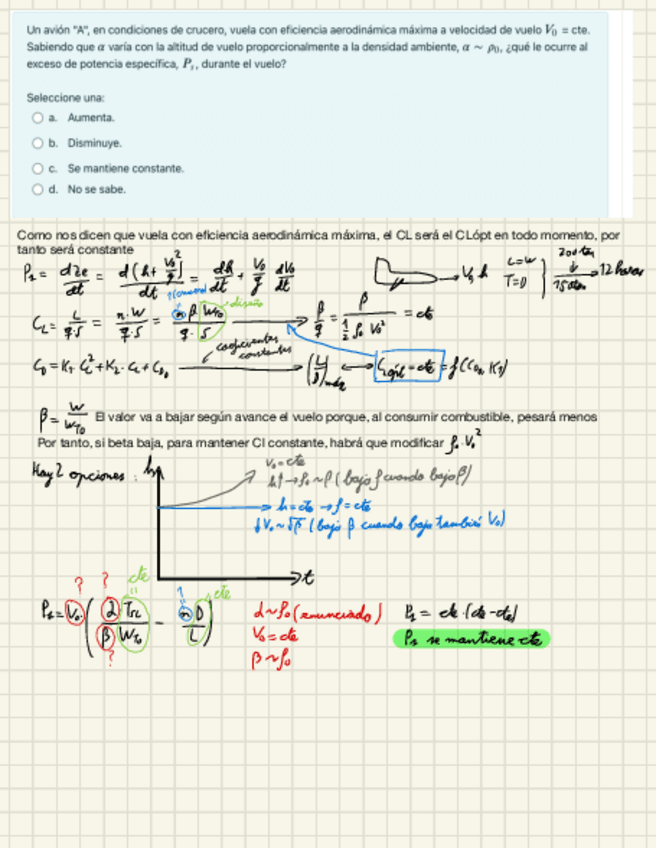 Un avión "A", en condiciones de crucero, vuela con eficiencia aerodinámica máxima a velocidad de vuelo V₀ = cte.
Sabiendo que α varía con la altitud de vuelo proporcionalmente a la densidad ambiente, α ~ ρ₀, ¿qué le ocurre al
exceso de potencia específica, Pₛ, durante el vuelo?
Seleccione una:
a. Aumenta.
b. Disminuye.
c. Se mantiene constante.
d. No se sabe.
Como nos dicen que vuela con eficiencia aerodinámica máxima, el CL será el CLópt en todo momento, por
tanto será constante
Pₛ = dze/dt = d(h + V₀²/g)/dt = dh/dt + V₀/g dV₀/dt
V₀, h
L=W
T=D
200 ton
↓
150 ton
→ 12 horas
C_L = L/q·S = n·W/q·S = n β W_TO/q·S → β/q = β/(½ ρ₀ V₀²) = cte
diseño
coeficientes constantes
C_D = K₁ C_L² + K₂·C_L + C_D₀ → (L/D)máx ↔ C_Lópt = cte = f(C_D₀, K₁)
β = W/W_TO El valor va a bajar según avance el vuelo porque, al consumir combustible, pesará menos
Por tanto, si beta baja, para mantener Cl constante, habrá que modificar ρ₀·V₀²
Hay 2 opciones: h
V₀ = cte
h↑ → ρ₀ ~ β (bajo ρ cuando bajo β)
h = cte → ρ = cte
↓V₀ ~ √β (bajo β cuando baja también V₀)
t
? ? cte 1 cte
Pₛ = V₀ (α T_SL/β W_TO − n D/L)
?
α ~ ρ₀ (enunciado)
V₀ = cte
β ~ ρ₀
Pₛ = cte·(cte − cte)
Pₛ se mantiene cte